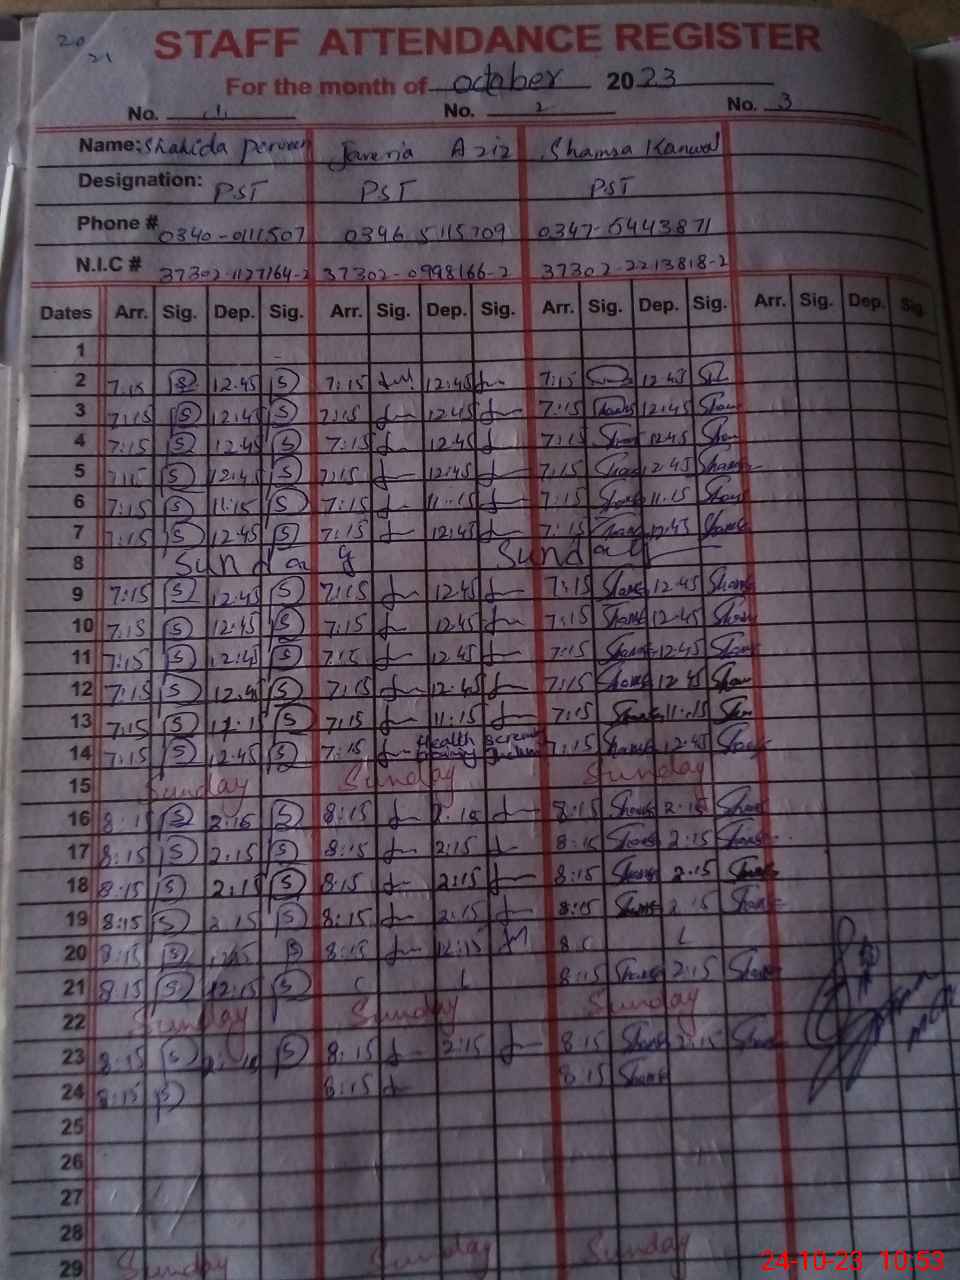 20
21
STAFF ATTENDANCE REGISTER
For the month of october 2023
No. 1 No. 2 No. 3
Name: Shahida Perveen Javeria Aziz Shamsa Kanwal
Designation: PST PST PST
Phone # 0340-0111507 0346 5115709 0347-5443871
N.I.C # 37302-1127164-2 37302-0998166-2 37302-2213818-2
Dates Arr. Sig. Dep. Sig. Arr. Sig. Dep. Sig. Arr. Sig. Dep. Sig. Arr. Sig. Dep. Sig.
1
2 7:15 S 12.45 S 7:15 12:45 7:15 12.45
3 7:15 S 12.45 S 7:15 12:45 7:15 12.45 Sham
4 7:15 S 12.45 S 7:15 12.45 7:15 12.45 Sham
5 7:15 S 12.45 S 7:15 12.45 7:15 Shams 12.45 Shams
6 7:15 S 11.15 S 7:15 11:15 7:15 Shams 11.15 Shams
7 7:15 S 12.45 S 7:15 12:45 7:15 Shams 12.45 Shams
8 Sunday Sunday
9 7:15 S 12.45 S 7:15 12.45 7:15 Shams 12.45 Shams
10 7:15 S 12.45 S 7:15 12.45 7:15 Shams 12.45 Shams
11 7:15 S 12.45 S 7:15 12.45 7:15 Shams 12.45 Sham
12 7:15 S 12.45 S 7:15 12.45 7:15 Shams 12.45 Sham
13 7:15 S 11.15 S 7:15 11:15 7:15 Shams 11.15 Sham
14 7:15 S 12.45 S 7:15 Health 7:15 Shams 12.45 Shams
15 Sunday Sunday Sunday
16 8:15 S 2:15 S 8:15 2.15 8:15 Shams 2.15 Shams
17 8:15 S 2.15 S 8:15 2:15 8:15 Shams 2.15 Shams
18 8:15 S 2:15 S 8:15 2:15 8:15 Shams 2.15 Shams
19 8:15 S 2.15 S 8:15 2.15 8:15 Shams 2.15 Shams
20 8:15 S S 8:15 12:15 C L
21 8.15 S 12:15 S C L 8:15 Shams 2:15 Shams
22 Sunday Sunday Sunday
23 8:15 S S 8:15 2:15 8:15 Shams 2:15 Shams
24 8:15 S 8:15 8:15 Shams
25
26
27
28
29 Sunday Sunday Sunday
24-10-23 10:53